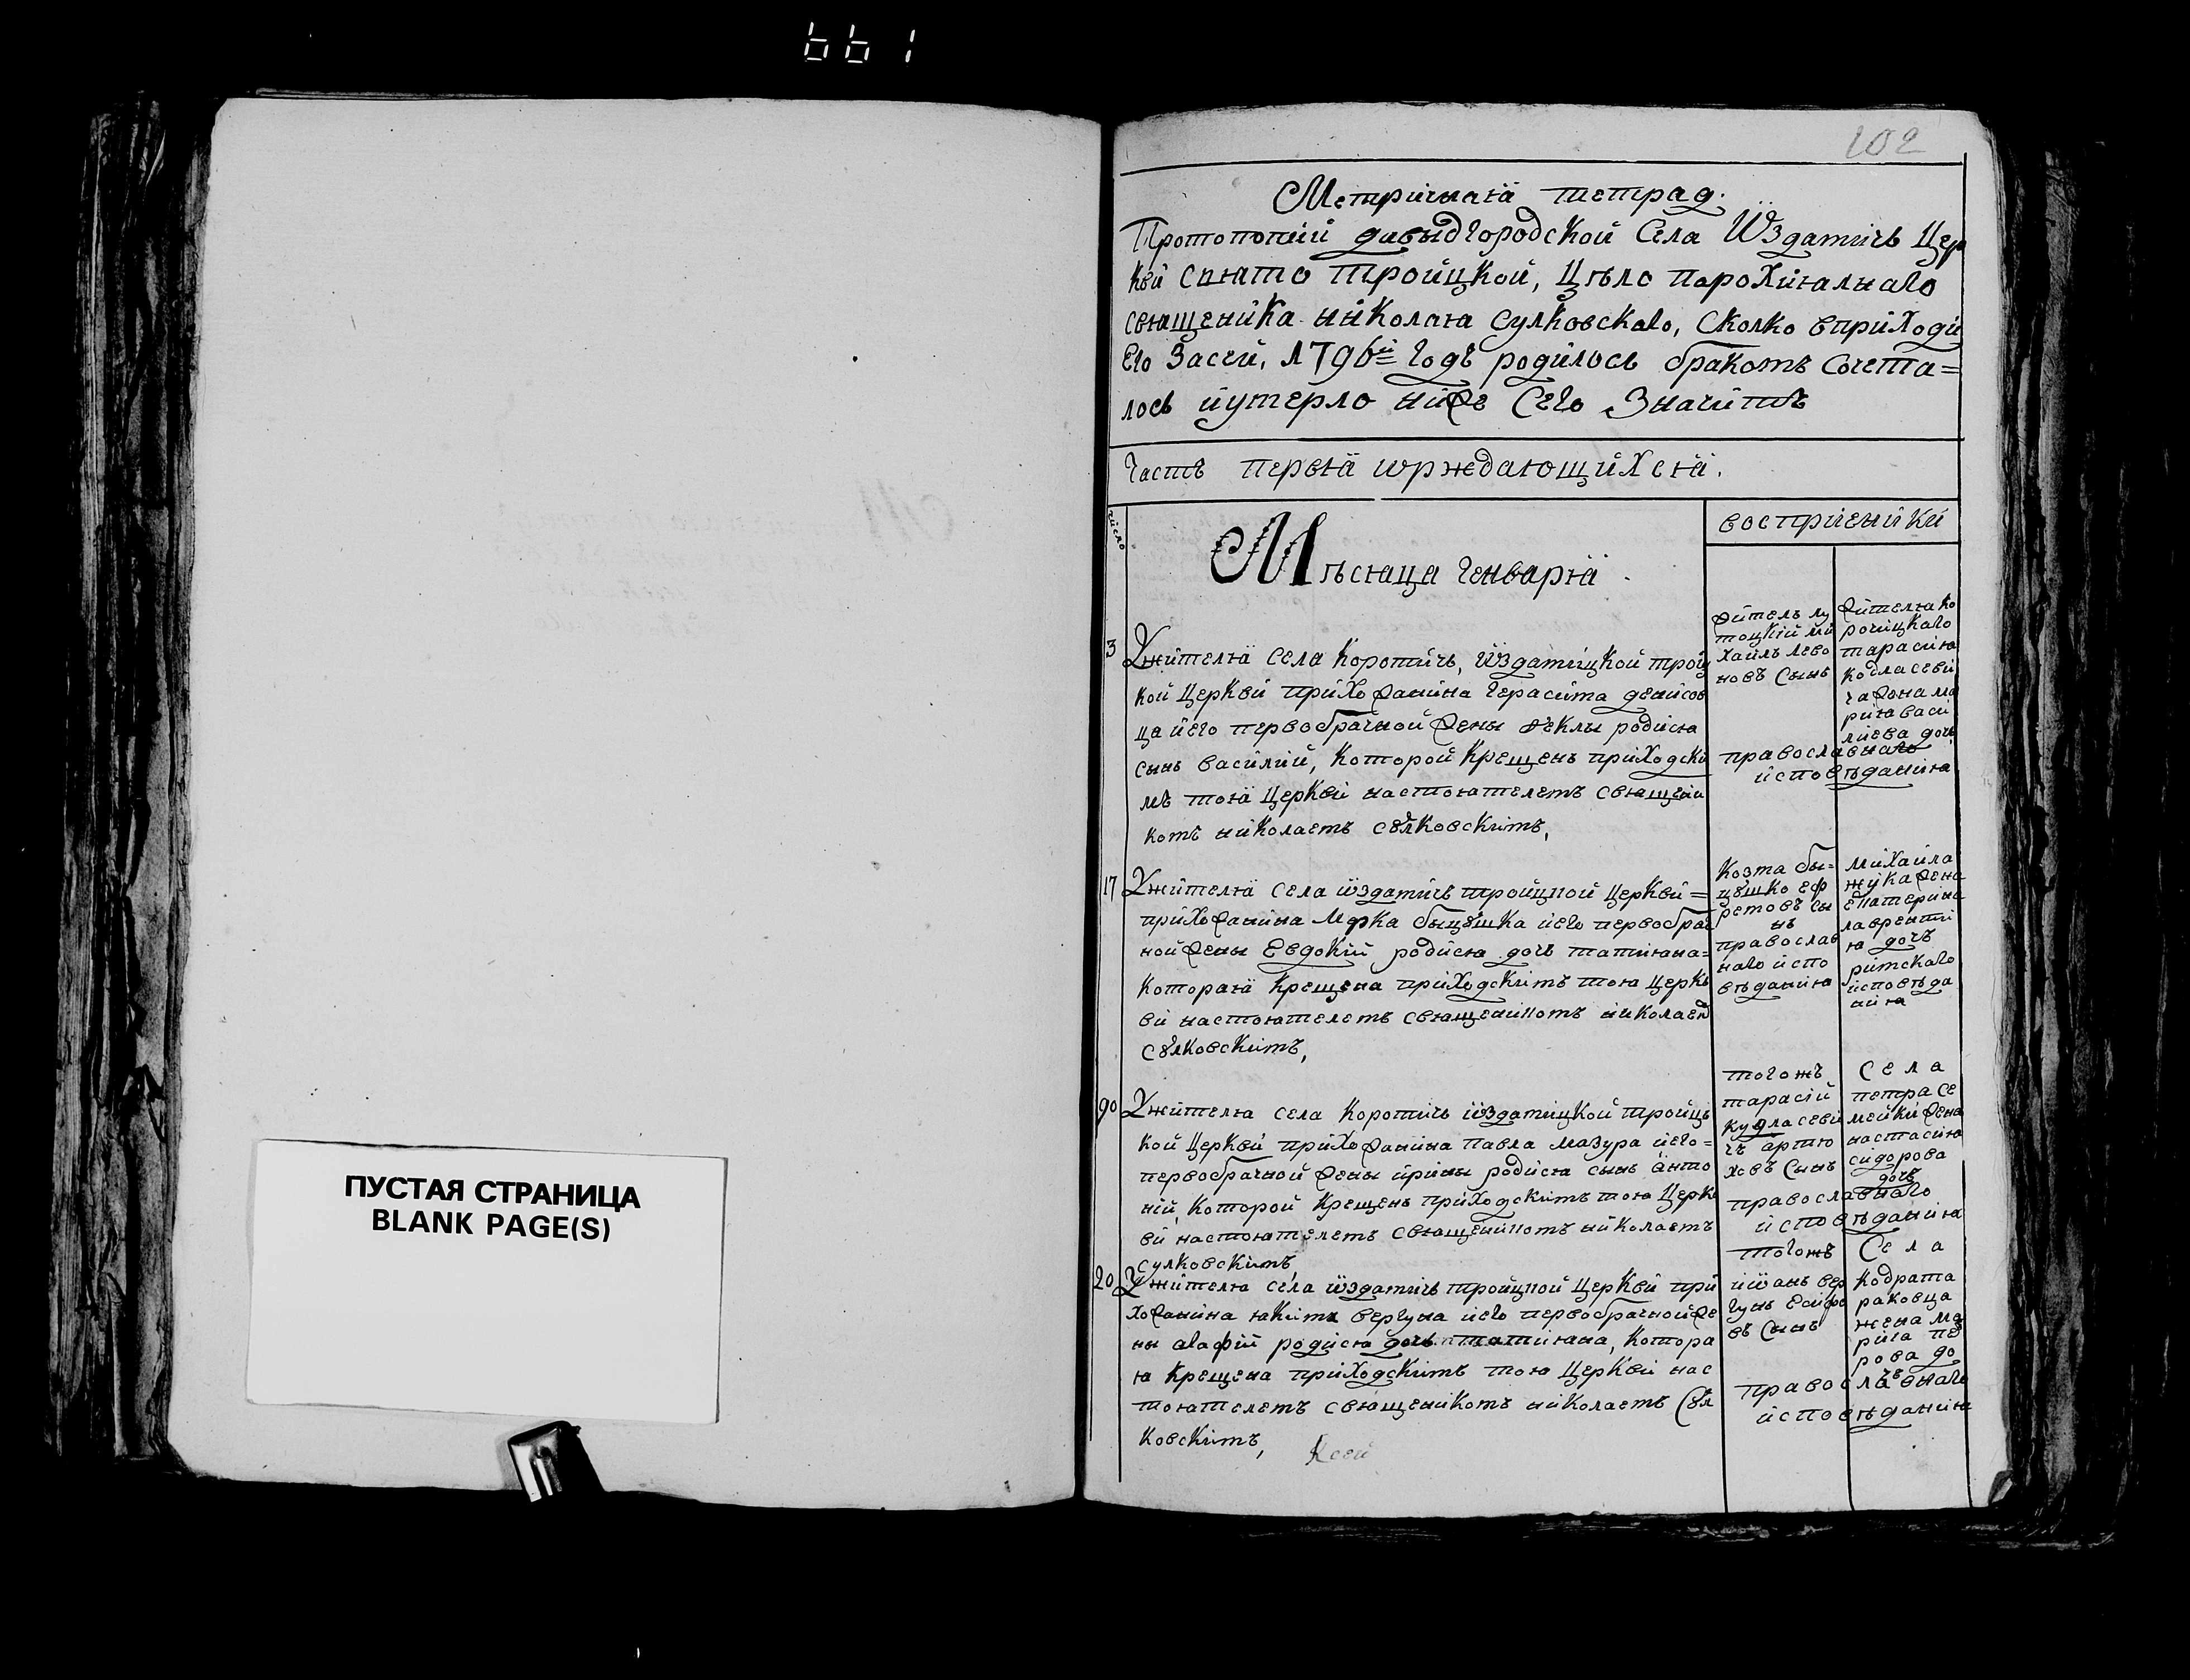 661
ПУСТАЯ СТРАНИЦА
BLANK PAGE(S)
102
Метричнаѧ тетрад.
Протопопий давыдгородской Села Ѿздатичь Цер
кви свѧто Тройцкой, Цѣло парохиѧлнаго
свѧщеника николаѧ сулковскаго, сколко вприходи
Его Засей, 1796й годъ родилось бракомъ Сочета=
лось иумерло ниже Сего Значитъ
Часть первѧ ѡрждающихсѧ.
число
Мѣсѧца Генварѧ
восприеники
3
Ужителѧ села Коротичь, ѿздатицкой трой
кой Церкви прихожанина Герасима денисов
ца иего первобрачной жены ѳеклы родисѧ
сынь василий, Которой Крещень приходски
мъ тоѧ Церкви настоѧтелемъ свѧщени
комъ николаемъ сꙋлковскимъ,
житель лу
тоцкий ми
хаилъ лево
новъ Сынь
жителѧ ко
рочицкаго
тарасиѧ
кодласеви
ча жона ма
риѧ васи
лиева дочь
православнаго
исповѣданиѧ
17
Ужителѧ села ѿздатичь тройцкой Церкви=
прихожанина Марка быцꙋшка иего первобрач
ной жены Евдокии родисѧ дочь татиѧна=
Котораѧ Крещена приходскимъ тоѧ Церк
ви настоѧтелемъ свѧщеникомъ николаем
сꙋлковскимъ,
Козма бы=
цꙋшко еф
ремовъ сы
нь
православ
наго испо
вѣданиѧ
михаила
жука жена
Екатерина
лавренти
ѧ дочъ
римскаго
исповѣда
ниѧ
90
Ужителѧ села Коротичь ѿздатицкой тройц
кой Церкви прихожанина павла мазура иего=
первобрачной жены ирины родисѧ сынь анто
ний, Которой Крещень приходскимъ тоѧ Церк
ви настоѧтелемъ свѧщеникомъ николаемъ
сулковскимъ,
тогожъ Села
тарасий
кудласеви
чъ артю
ховъ Сынь
петра се
мейки жена
настасиѧ
сидорова
дочъ
православнаго
исповѣданиѧ
20
Ужителѧ села ѿздатичь тройцкой Церкви при
хожанина ѧкима вергуна иего первобрачной же
ны агафии родисѧ дочь татиѧна, Котора
ѧ Крещена приходскимъ тоѧ Церкви нас
тоѧтелемъ свѧщеникомъ николаемъ Сꙋл
ковскимъ,
тогожъ Села
иѿань вер
гунь Есифо
въ Сынь
кодрата
раковца
жена ма
риѧ пе
рова до
чъ
православнаго
исповѣданиѧ